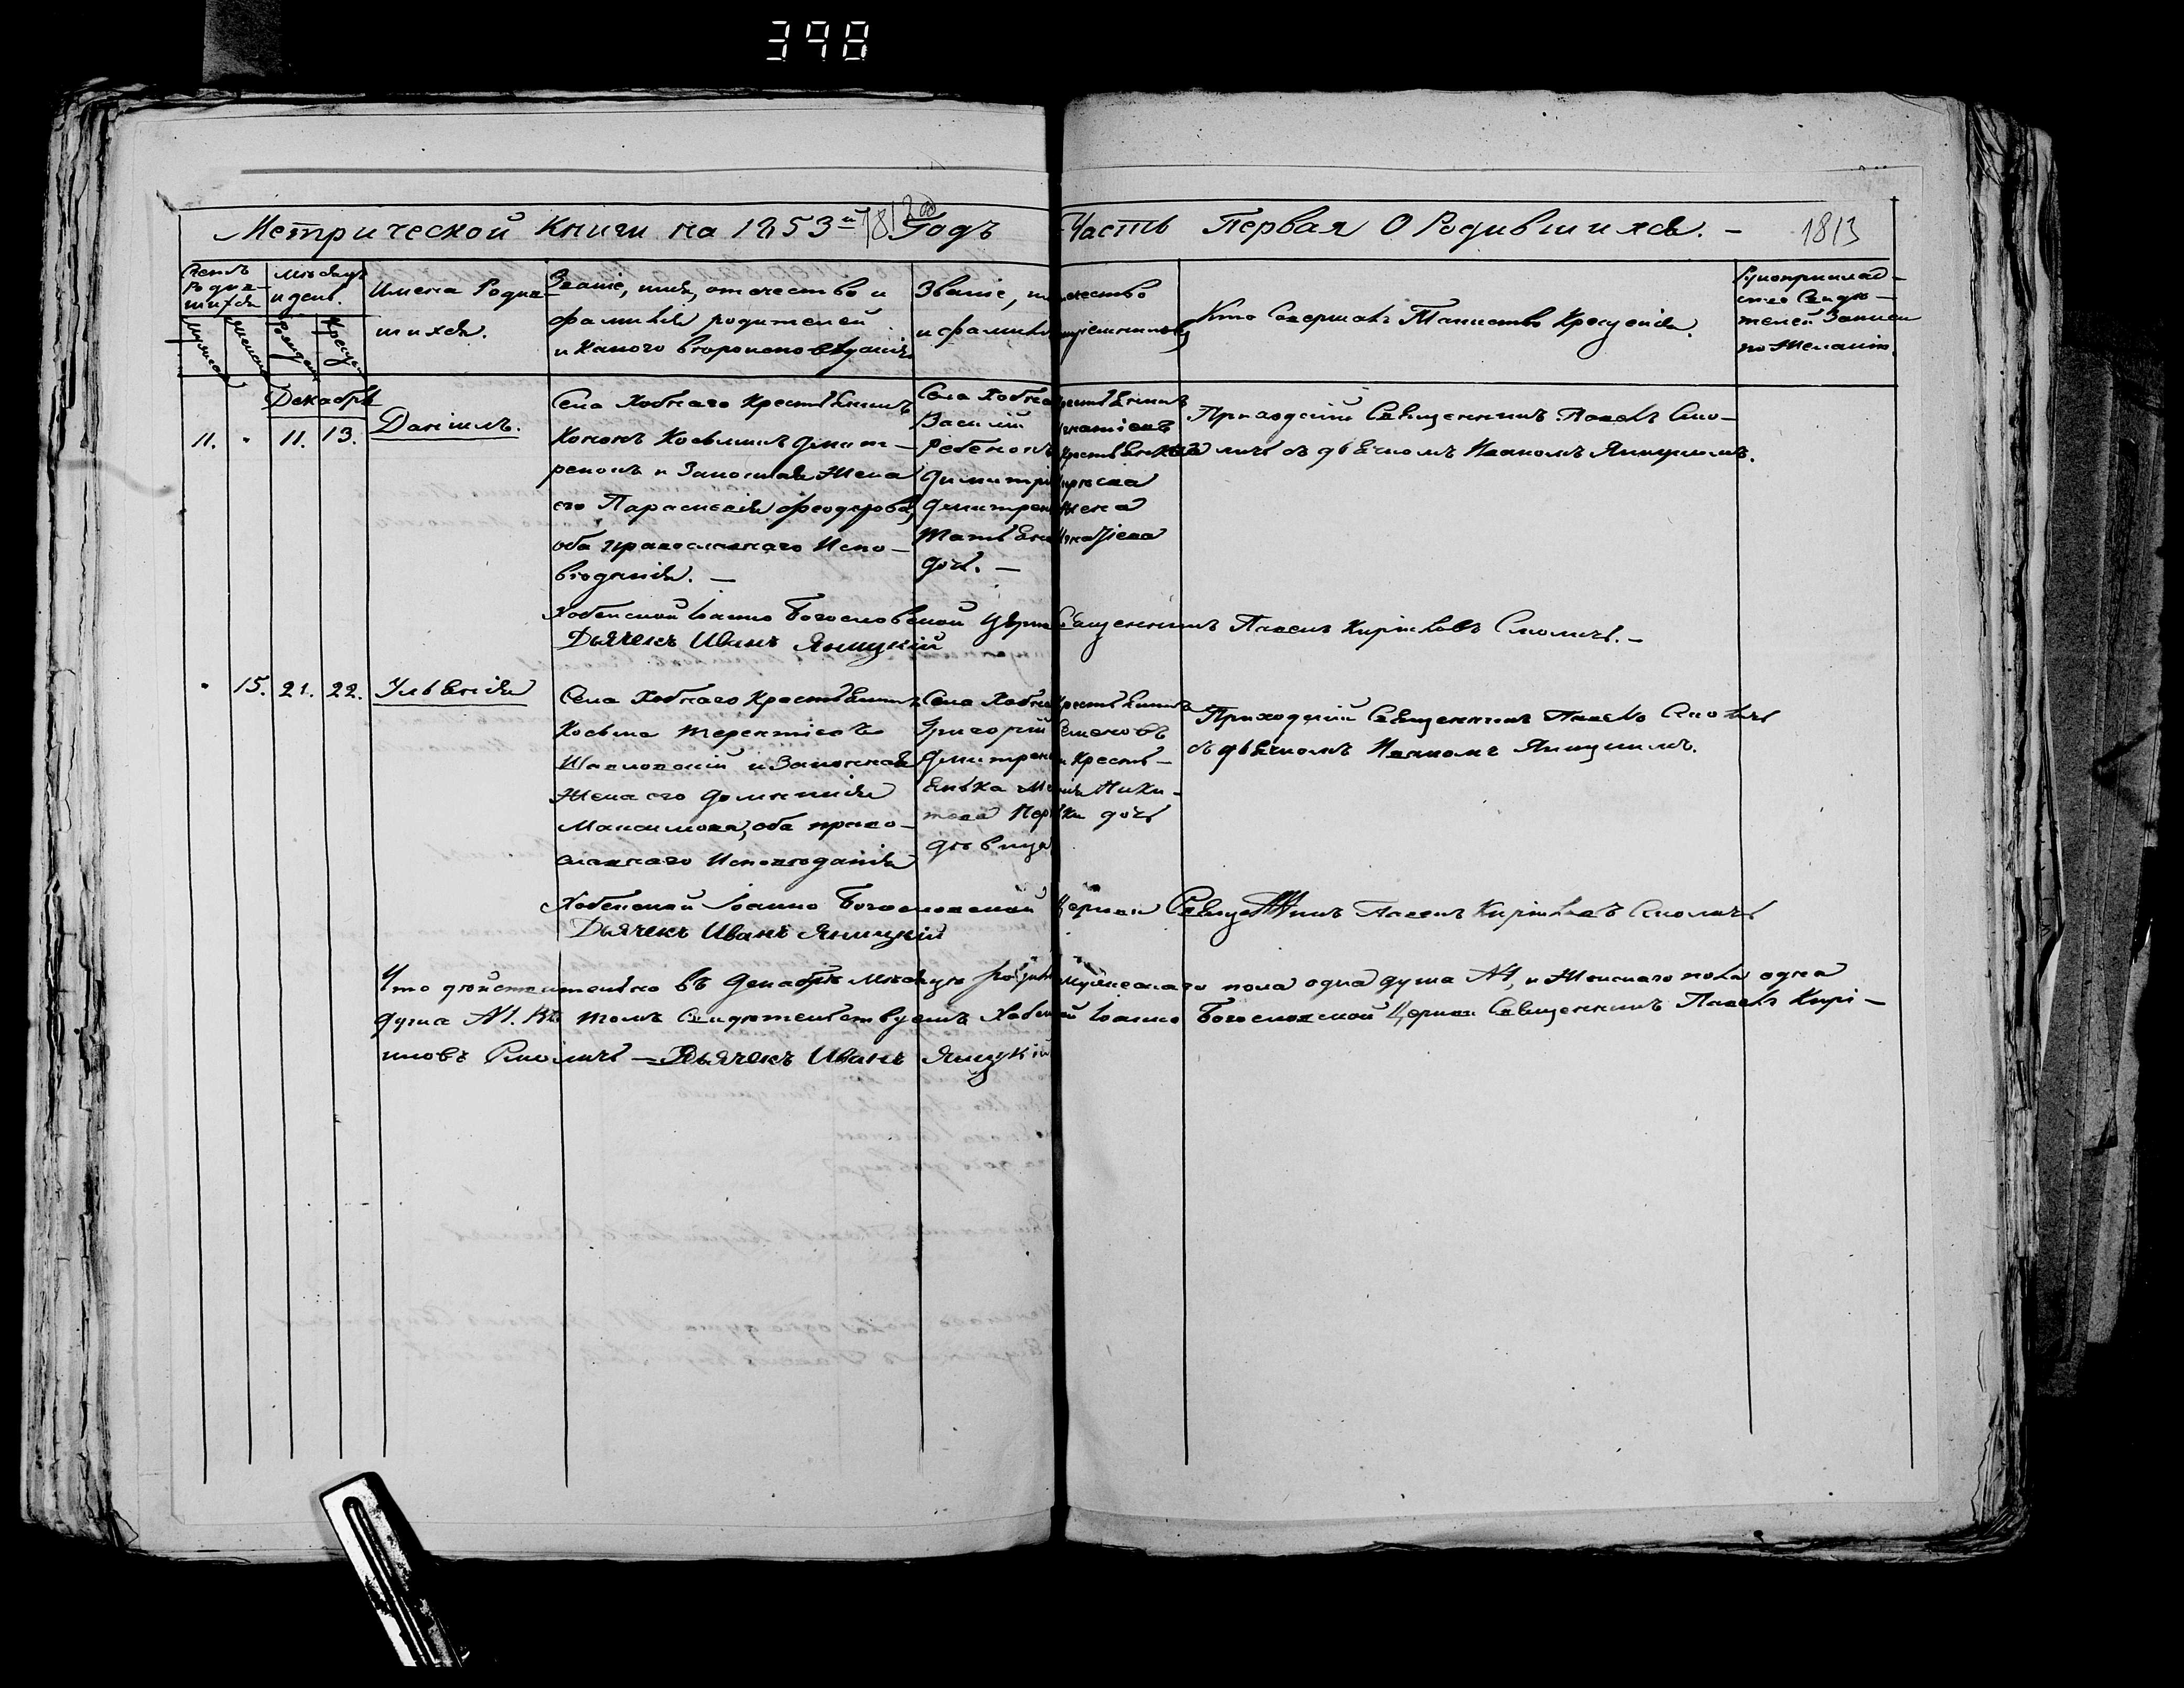 398
Метрической Книги на 1853й Годъ Часть Первая О Родившихся. – 1813
Счетъ Родившихся
Мѣсяцъ и день.
Имена Родившихся.
Званіе, имя, отечество и
фамилія родителей
и какого вѣроисповѣданія
Званіе, имя, отечество
и фамилія воспріемниковъ
Кто Совершалъ Таинство Крещенія.
Рукоприклад-
ство Свидѣ-
телей Записи
по Желанію.
Декабрь
11. " 11. 13. Даніилъ.
Села Хобнаго Крестьянинъ
Кононъ Косьминъ Дмит-
ренокъ и Законная Жена
его Параскевія Феодорова,
оба православнаго Испо-
вѣданія. –
Села Хобнаго Крестьянинъ
Василій Игнатіевъ
Ребенокъ Крестьянина
Димитрія
Дмитренка Жена
Татьяна Игнатіева
дочь. –
Приходскій Священникъ Павелъ Смо-
личъ съ дьячкомъ Иваномъ Яницкимъ.
Хобенской Іоанно Богословской Церкви Священникъ Павелъ Кириловъ Смоличъ. –
Дьячекъ Иванъ Яницкій
" 15. 21. 22. Ульянія
Села Хобнаго Крестьянинъ
Косьма Терентіевъ
Шавловскій и Законная
Жена его Домникія
Максимова, оба право-
славнаго Исповѣданія
Села Хобнаго Крестьянинъ
Григорій Семеновъ
Дмитренокъ и Кресть-
янка Марія Ники-
това дочь
дѣвица
Приходскій Священникъ Павелъ Смоличъ
съ дьячкомъ Иваномъ Яницкимъ.
Хобенской Іоанно Богословской Церкви Священникъ Павелъ Кириловъ Смоличъ
Дьячекъ Иванъ Яницкій
Что дѣйствительно въ Декабрѣ Мѣсяцѣ мужескаго пола одна душа №1, и Женскаго пола одна
душа №1. Въ томъ Свидѣтельствуемъ Хобенской Іоанно Богословской Церкви Священникъ Павелъ Кири-
ловъ Смоличъ – Дьячекъ Иванъ Яницкій